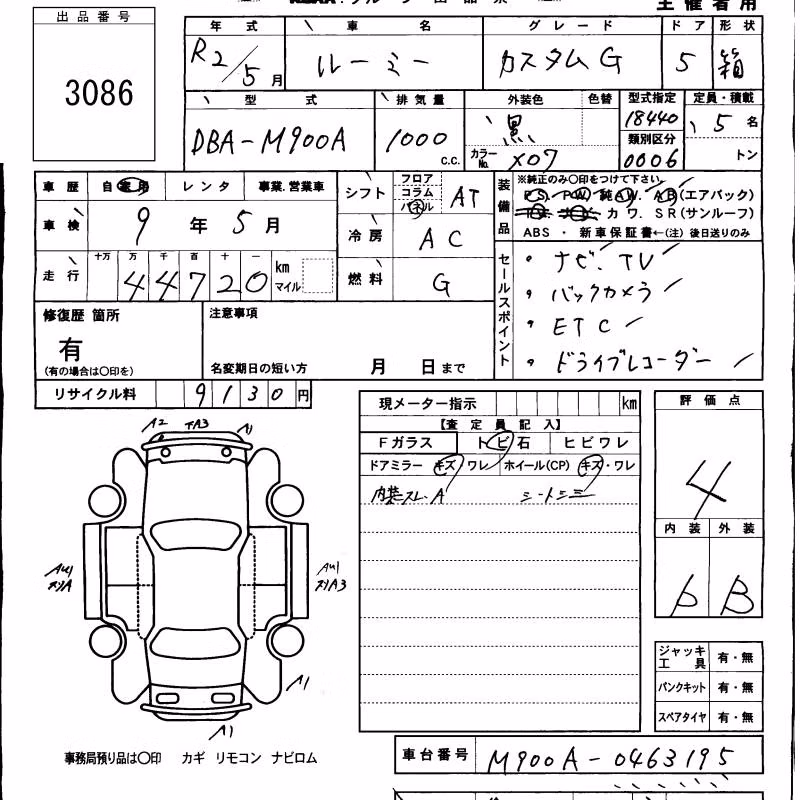 主催者用
出品番号
3086
年式 車名 グレード ドア 形状
R2/5月 ルーミー カスタムG 5 箱
型式 排気量 外装色 色替 型式指定 定員・積載
DBA-M900A 1000 c.c. 黒 18440 5名
類別区分
カラーNo. X07 0006 トン
車歴 自家用 レンタ 事業.営業車
シフト フロア コラム パネル AT
装備品 ※純正のみ〇印をつけて下さい.
P.S. P.W. 純A.W. A.B(エアバック)
カワ. SR(サンルーフ)
ABS ・ 新車保証書←(注) 後日送りのみ
車検 9年5月
冷房 AC
走行 十万 万 千 百 十 一
44720 km マイル
燃料 G
セールスポイント
・ナビ.TV
・バックカメラ
・ETC
・ドライブレコーダー
修復歴 箇所
有
(有の場合は〇印を)
注意事項
名変期日の短い方 月 日まで
リサイクル料 9130円
現メーター指示 km
【査定員記入】
Fガラス トビ石 ヒビワレ
ドアミラー キズ ワレ ホイール(CP) キズ・ワレ
内装スレ.A
評価点
4
内装 外装
b B
A2 A3 A1
A3
A1
A1
ジャッキ工具 有・無
パンクキット 有・無
スペアタイヤ 有・無
事務局預り品は〇印 カギ リモコン ナビロム
車台番号 M900A-0463195